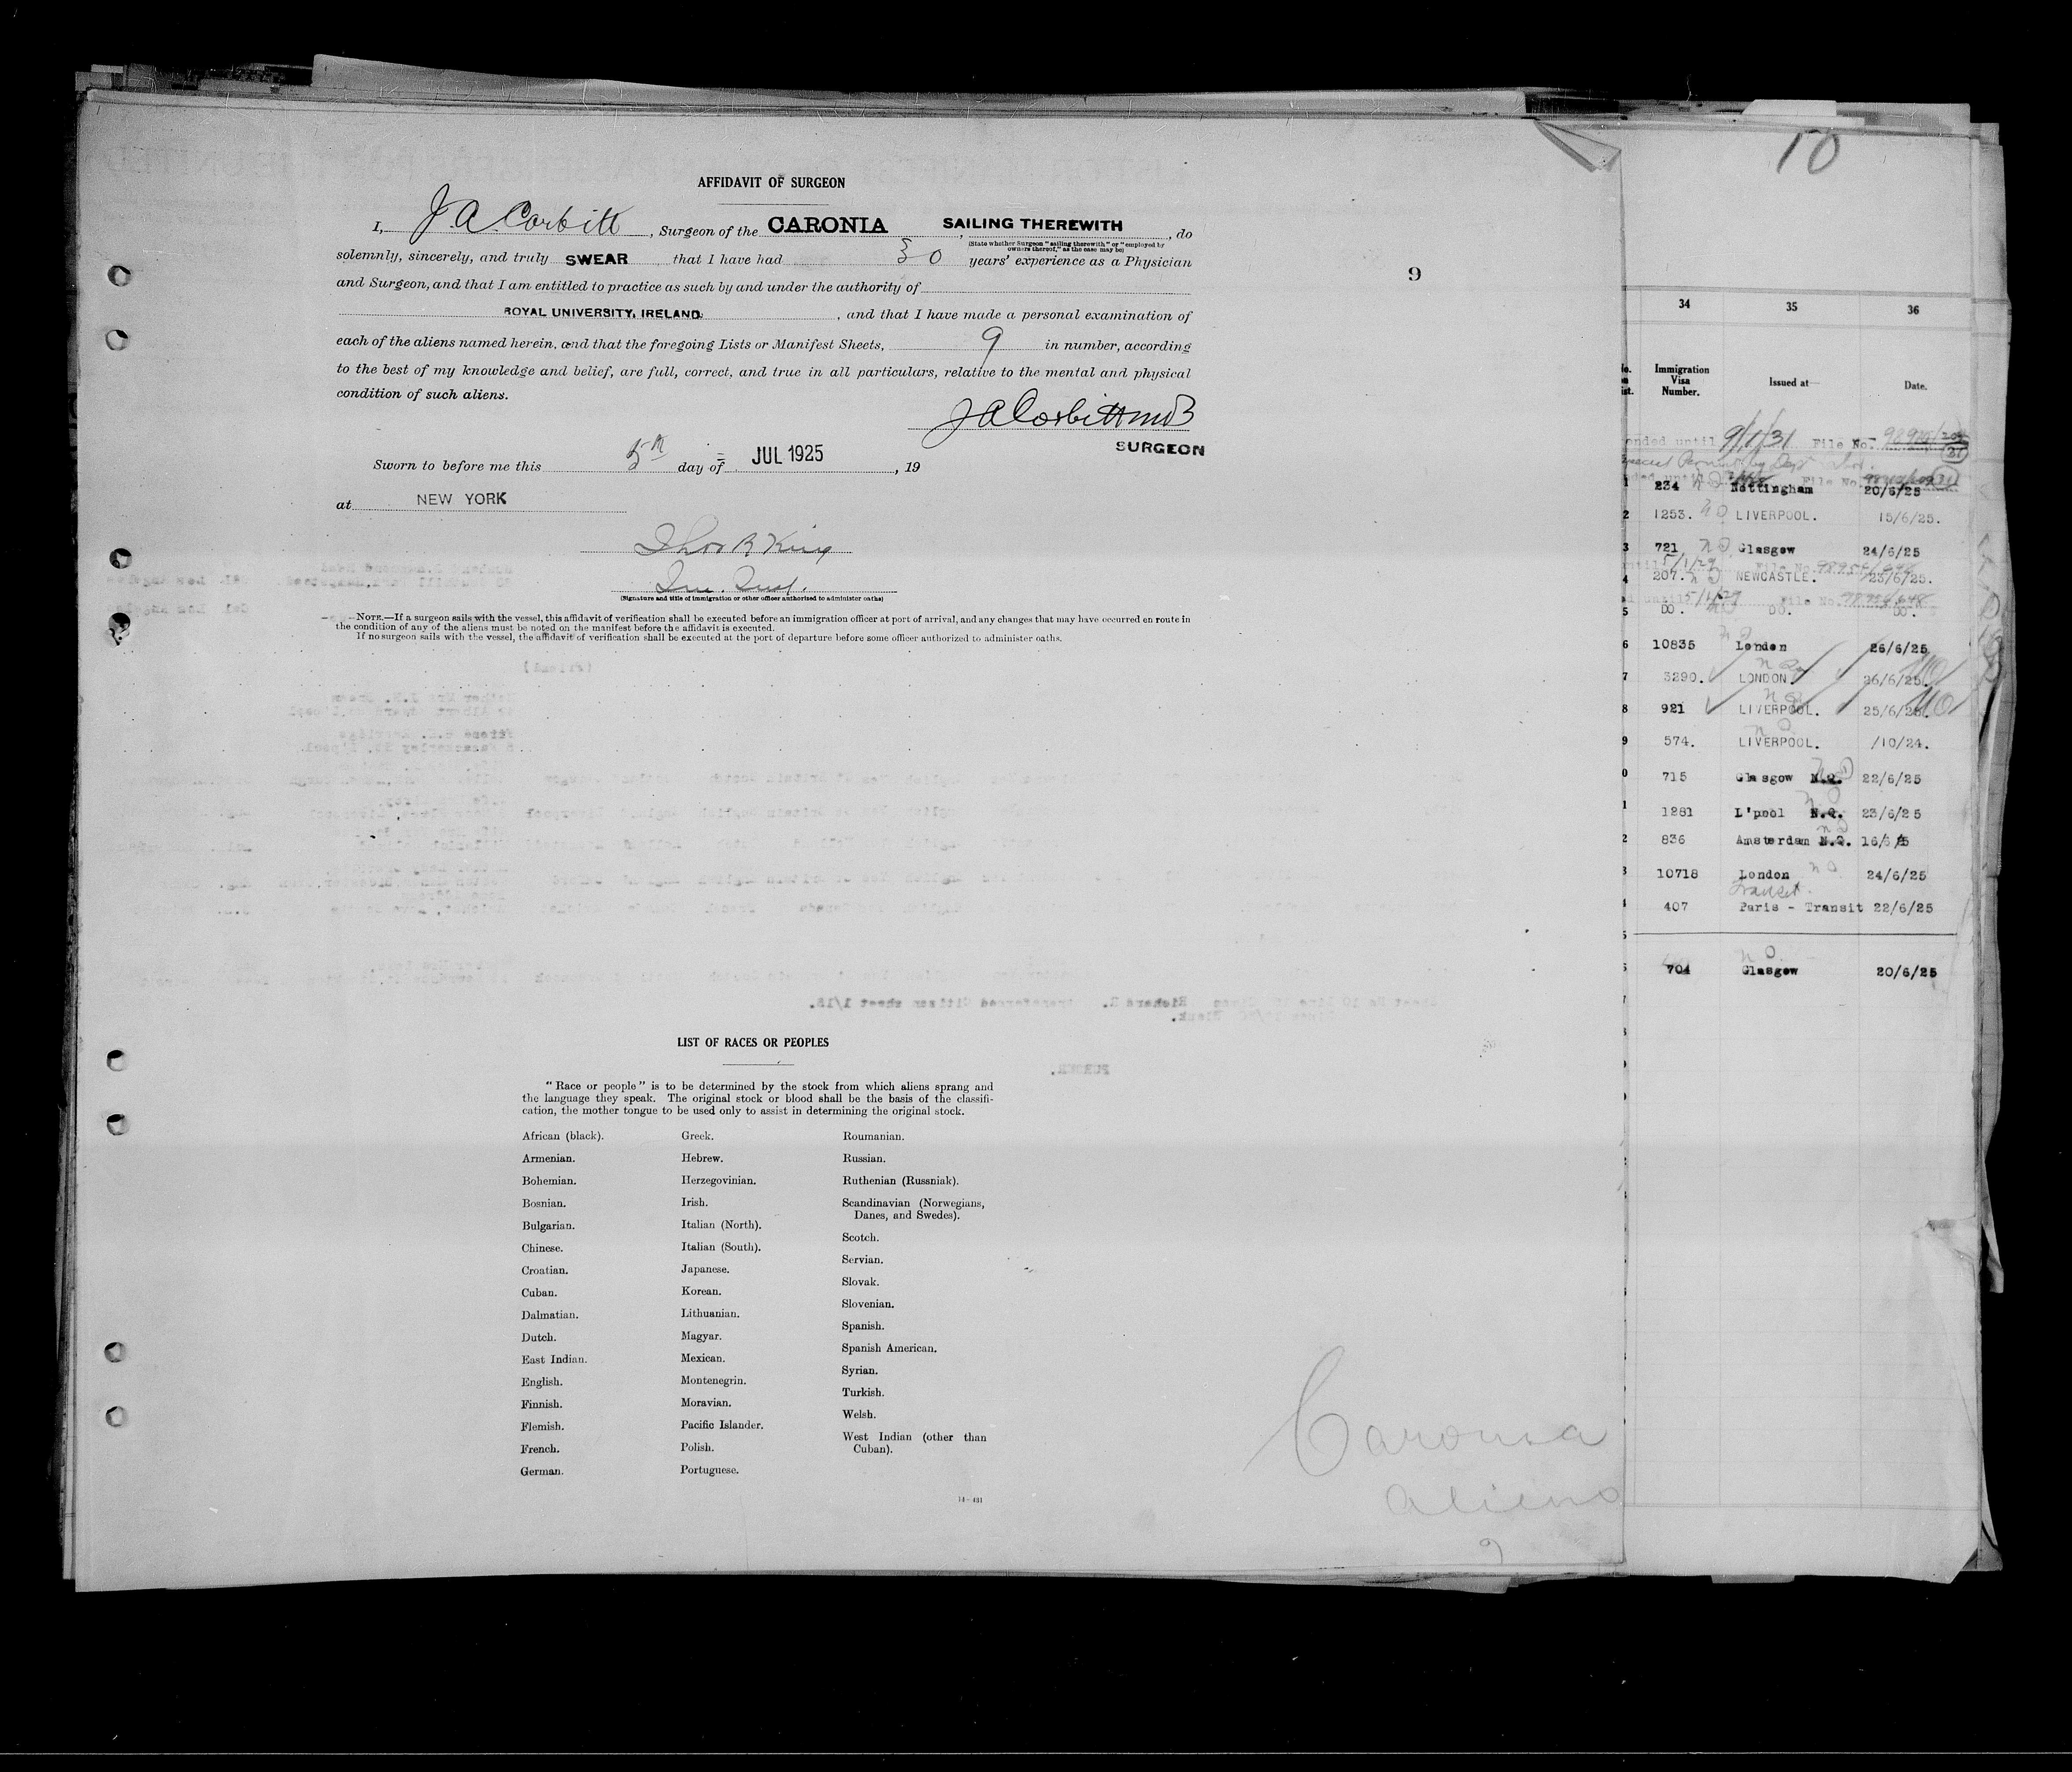 AFFIDAVIT OF SURGEON
I, J. A. Corbitt, Surgeon of the CARONIA, SAILING THEREWITH, do
(State whether Surgeon "sailing therewith" or "employed by
owners thereof," as the case may be)
solemnly, sincerely, and truly SWEAR that I have had 30 years' experience as a Physician
and Surgeon, and that I am entitled to practice as such by and under the authority of
ROYAL UNIVERSITY, IRELAND, and that I have made a personal examination of
each of the aliens named herein, and that the foregoing Lists or Manifest Sheets, 9 in number, according
to the best of my knowledge and belief, are full, correct, and true in all particulars, relative to the mental and physical
condition of such aliens.
J A Corbitt MB
SURGEON
Sworn to before me this 5th day of JUL 1925, 19
at NEW YORK
Thos R King
(Signature and title of immigration or other officer authorized to administer oaths)
NOTE.—If a surgeon sails with the vessel, this affidavit of verification shall be executed before an immigration officer at port of arrival, and any changes that may have occurred en route in
the condition of any of the aliens must be noted on the manifest before the affidavit is executed.
If no surgeon sails with the vessel, the affidavit of verification shall be executed at the port of departure before some officer authorized to administer oaths.
9
LIST OF RACES OR PEOPLES
"Race or people" is to be determined by the stock from which aliens sprang and
the language they speak. The original stock or blood shall be the basis of the classifi-
cation, the mother tongue to be used only to assist in determining the original stock.
African (black).
Armenian.
Bohemian.
Bosnian.
Bulgarian.
Chinese.
Croatian.
Cuban.
Dalmatian.
Dutch.
East Indian.
English.
Finnish.
Flemish.
French.
German.
Greek.
Hebrew.
Herzegovinian.
Irish.
Italian (North).
Italian (South).
Japanese.
Korean.
Lithuanian.
Magyar.
Mexican.
Montenegrin.
Moravian.
Pacific Islander.
Polish.
Portuguese.
Roumanian.
Russian.
Ruthenian (Russniak).
Scandinavian (Norwegians,
Danes, and Swedes).
Scotch.
Servian.
Slovak.
Slovenian.
Spanish.
Spanish American.
Syrian.
Turkish.
Welsh.
West Indian (other than
Cuban).
Caronia
aliens
9
10
34 35 36
Immigration
Visa
Number.
Issued at
Date.
ended until 9/1/31 File No.
234 Nottingham 20/6/25
1253. LIVERPOOL. 15/6/25.
721 Glasgow 24/6/25
5/1/29 File No.
207. NEWCASTLE. 23/6/25.
5/1/29 File No.
DO. DO. DO.
10835 London 26/6/25
3290. LONDON. 26/6/25.
921 LIVERPOOL. 25/6/25.
574. LIVERPOOL. /10/24.
715 Glasgow N.Q. 22/6/25
1281 L'pool N.Q. 23/6/25
836 Amsterdam N.Q. 16/6/25
10718 London 24/6/25
Transit.
407 Paris - Transit 22/6/25
704 Glasgow 20/6/25